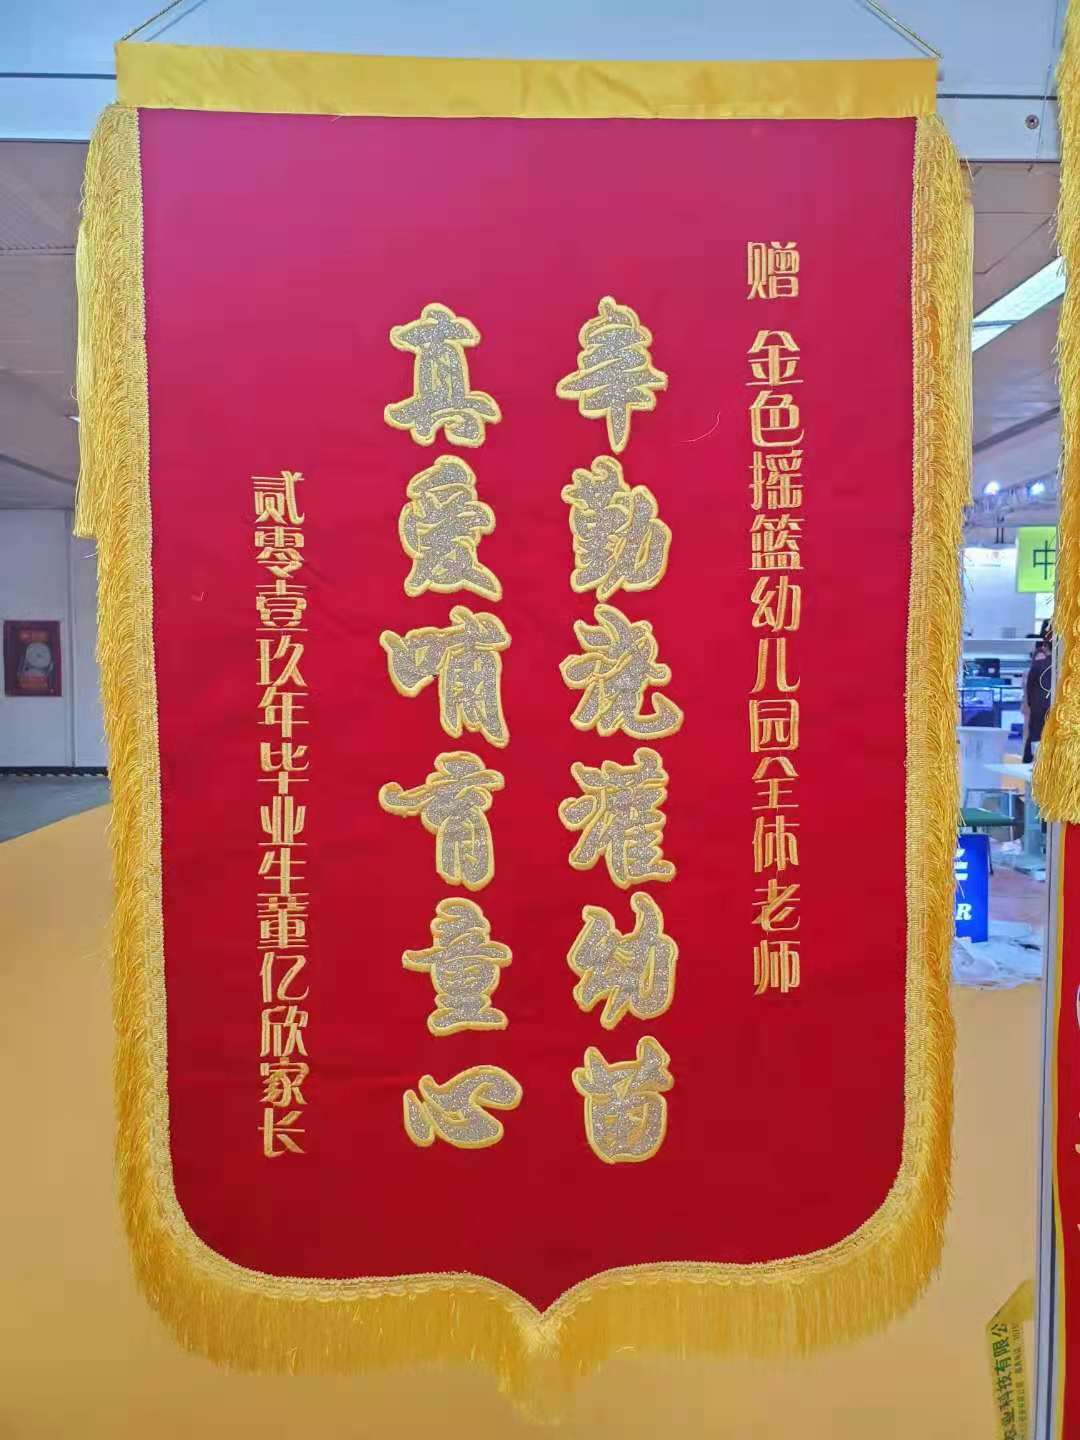 赠 金色摇篮幼儿园全体老师
辛勤浇灌幼苗
真爱哺育童心
贰零壹玖年毕业生董亿欣家长
中
R
科技有限公